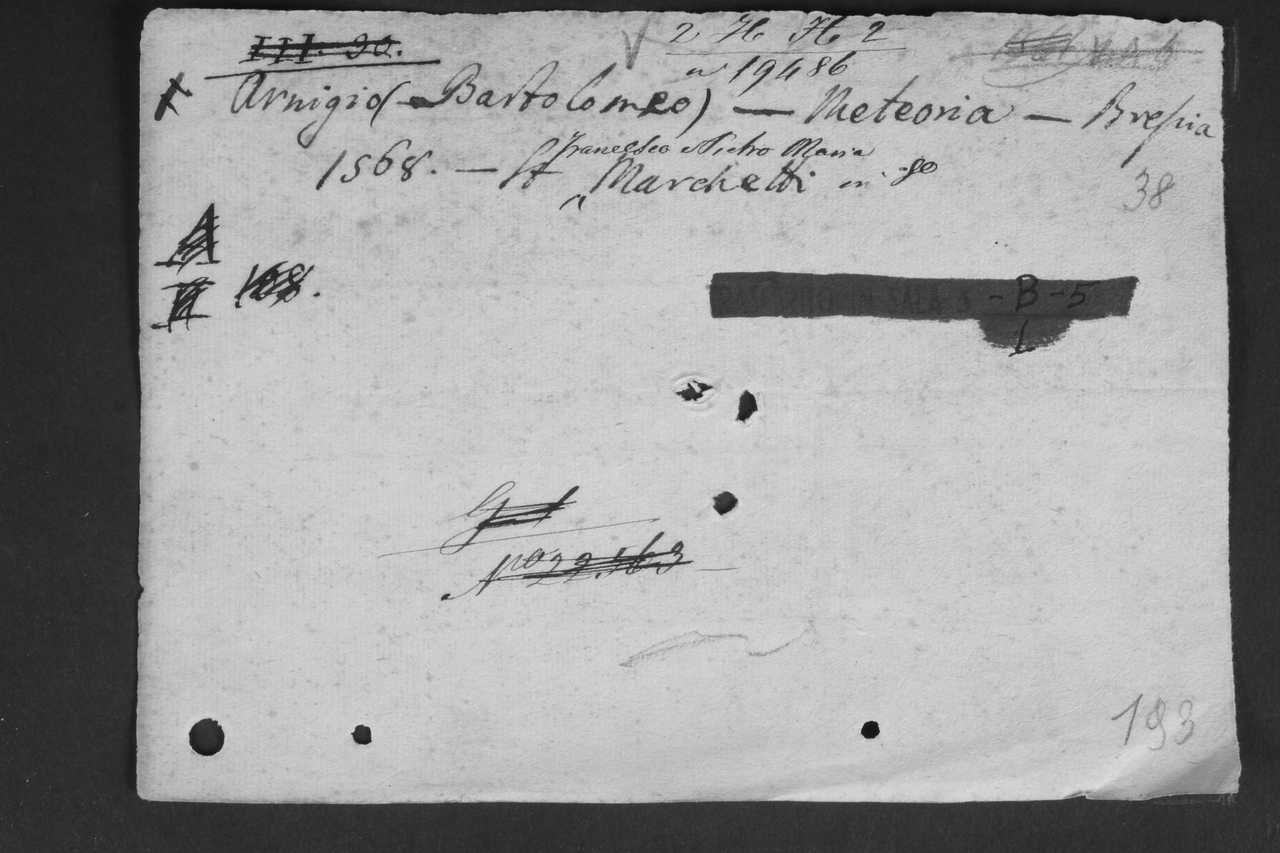 III. 90.
2 H H 2
n 19486
Arnigio (Bartolomeo) — Meteoria — Brescia
1568. — Francesco Pietro Maria
Marchetti in 8o
38
A
108.
- B - 5
L
No 22563
193